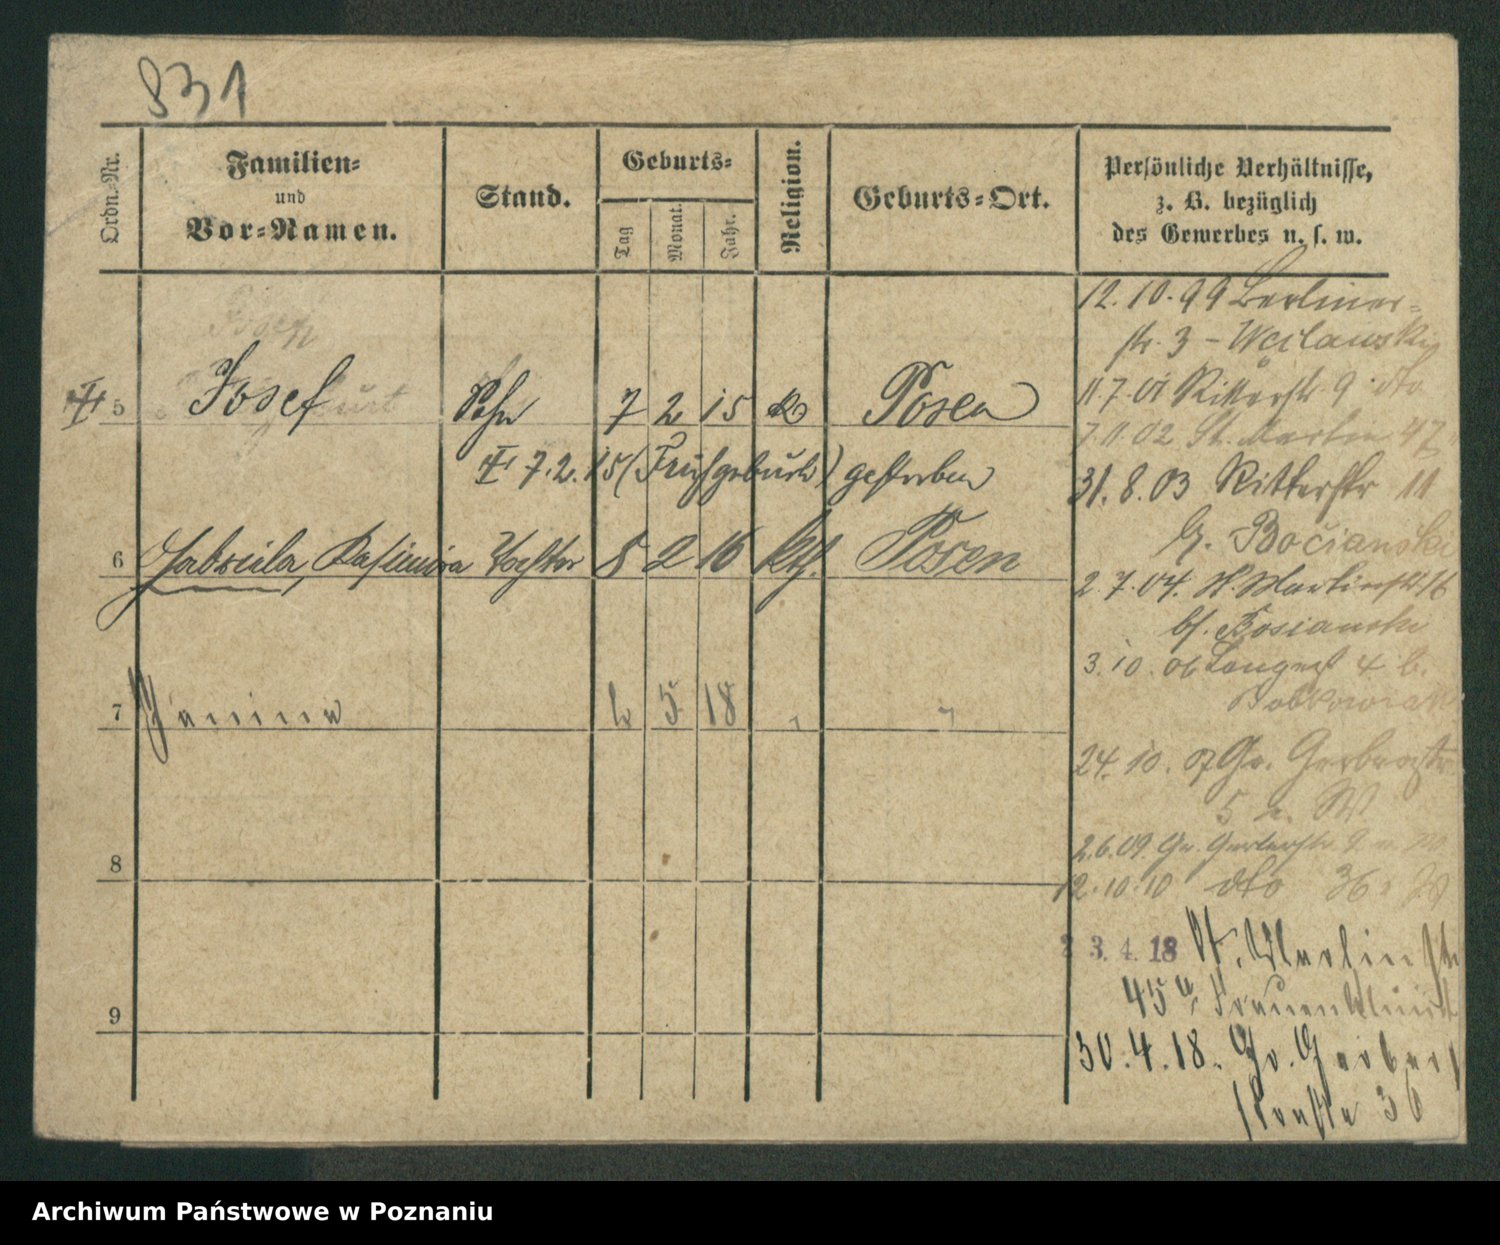 831
Ordn.-Nr.
Familien-
und
Vor-Namen.
Stand.
Geburts-
Tag
Monat.
Jahr.
Religion.
Geburts-Ort.
Persönliche Verhältnisse,
z. B. bezüglich
des Gewerbes u. s. w.
5 Josef Sohn 7 2 15 k Posen
7.2.15 (Frühgeburt) gestorben
6 Gabriela, Kasimira Tochter 8 2 16 kth. Posen
7 Janina 2 5 18 " "
8
9
12.10.99 Berliner-
str. 3 -
11.7.01 Ritterstr 9 dto
7.11.02 St. Martin 47
31.8.03 Ritterstr 11
b. Bocianski
2.7.04. St. Martinstr
bei Bosianski
3.10.06 Langest 4 b.
24.10.07 Gr. Gerberstr
5
2.6.09. Gr. Gerberstr 9
12.10.10 dto 36
23.4.18 St. Martinstr
45a, Frauenklinik
30.4.18. Gr. Gerber
straße 36
Archiwum Państwowe w Poznaniu